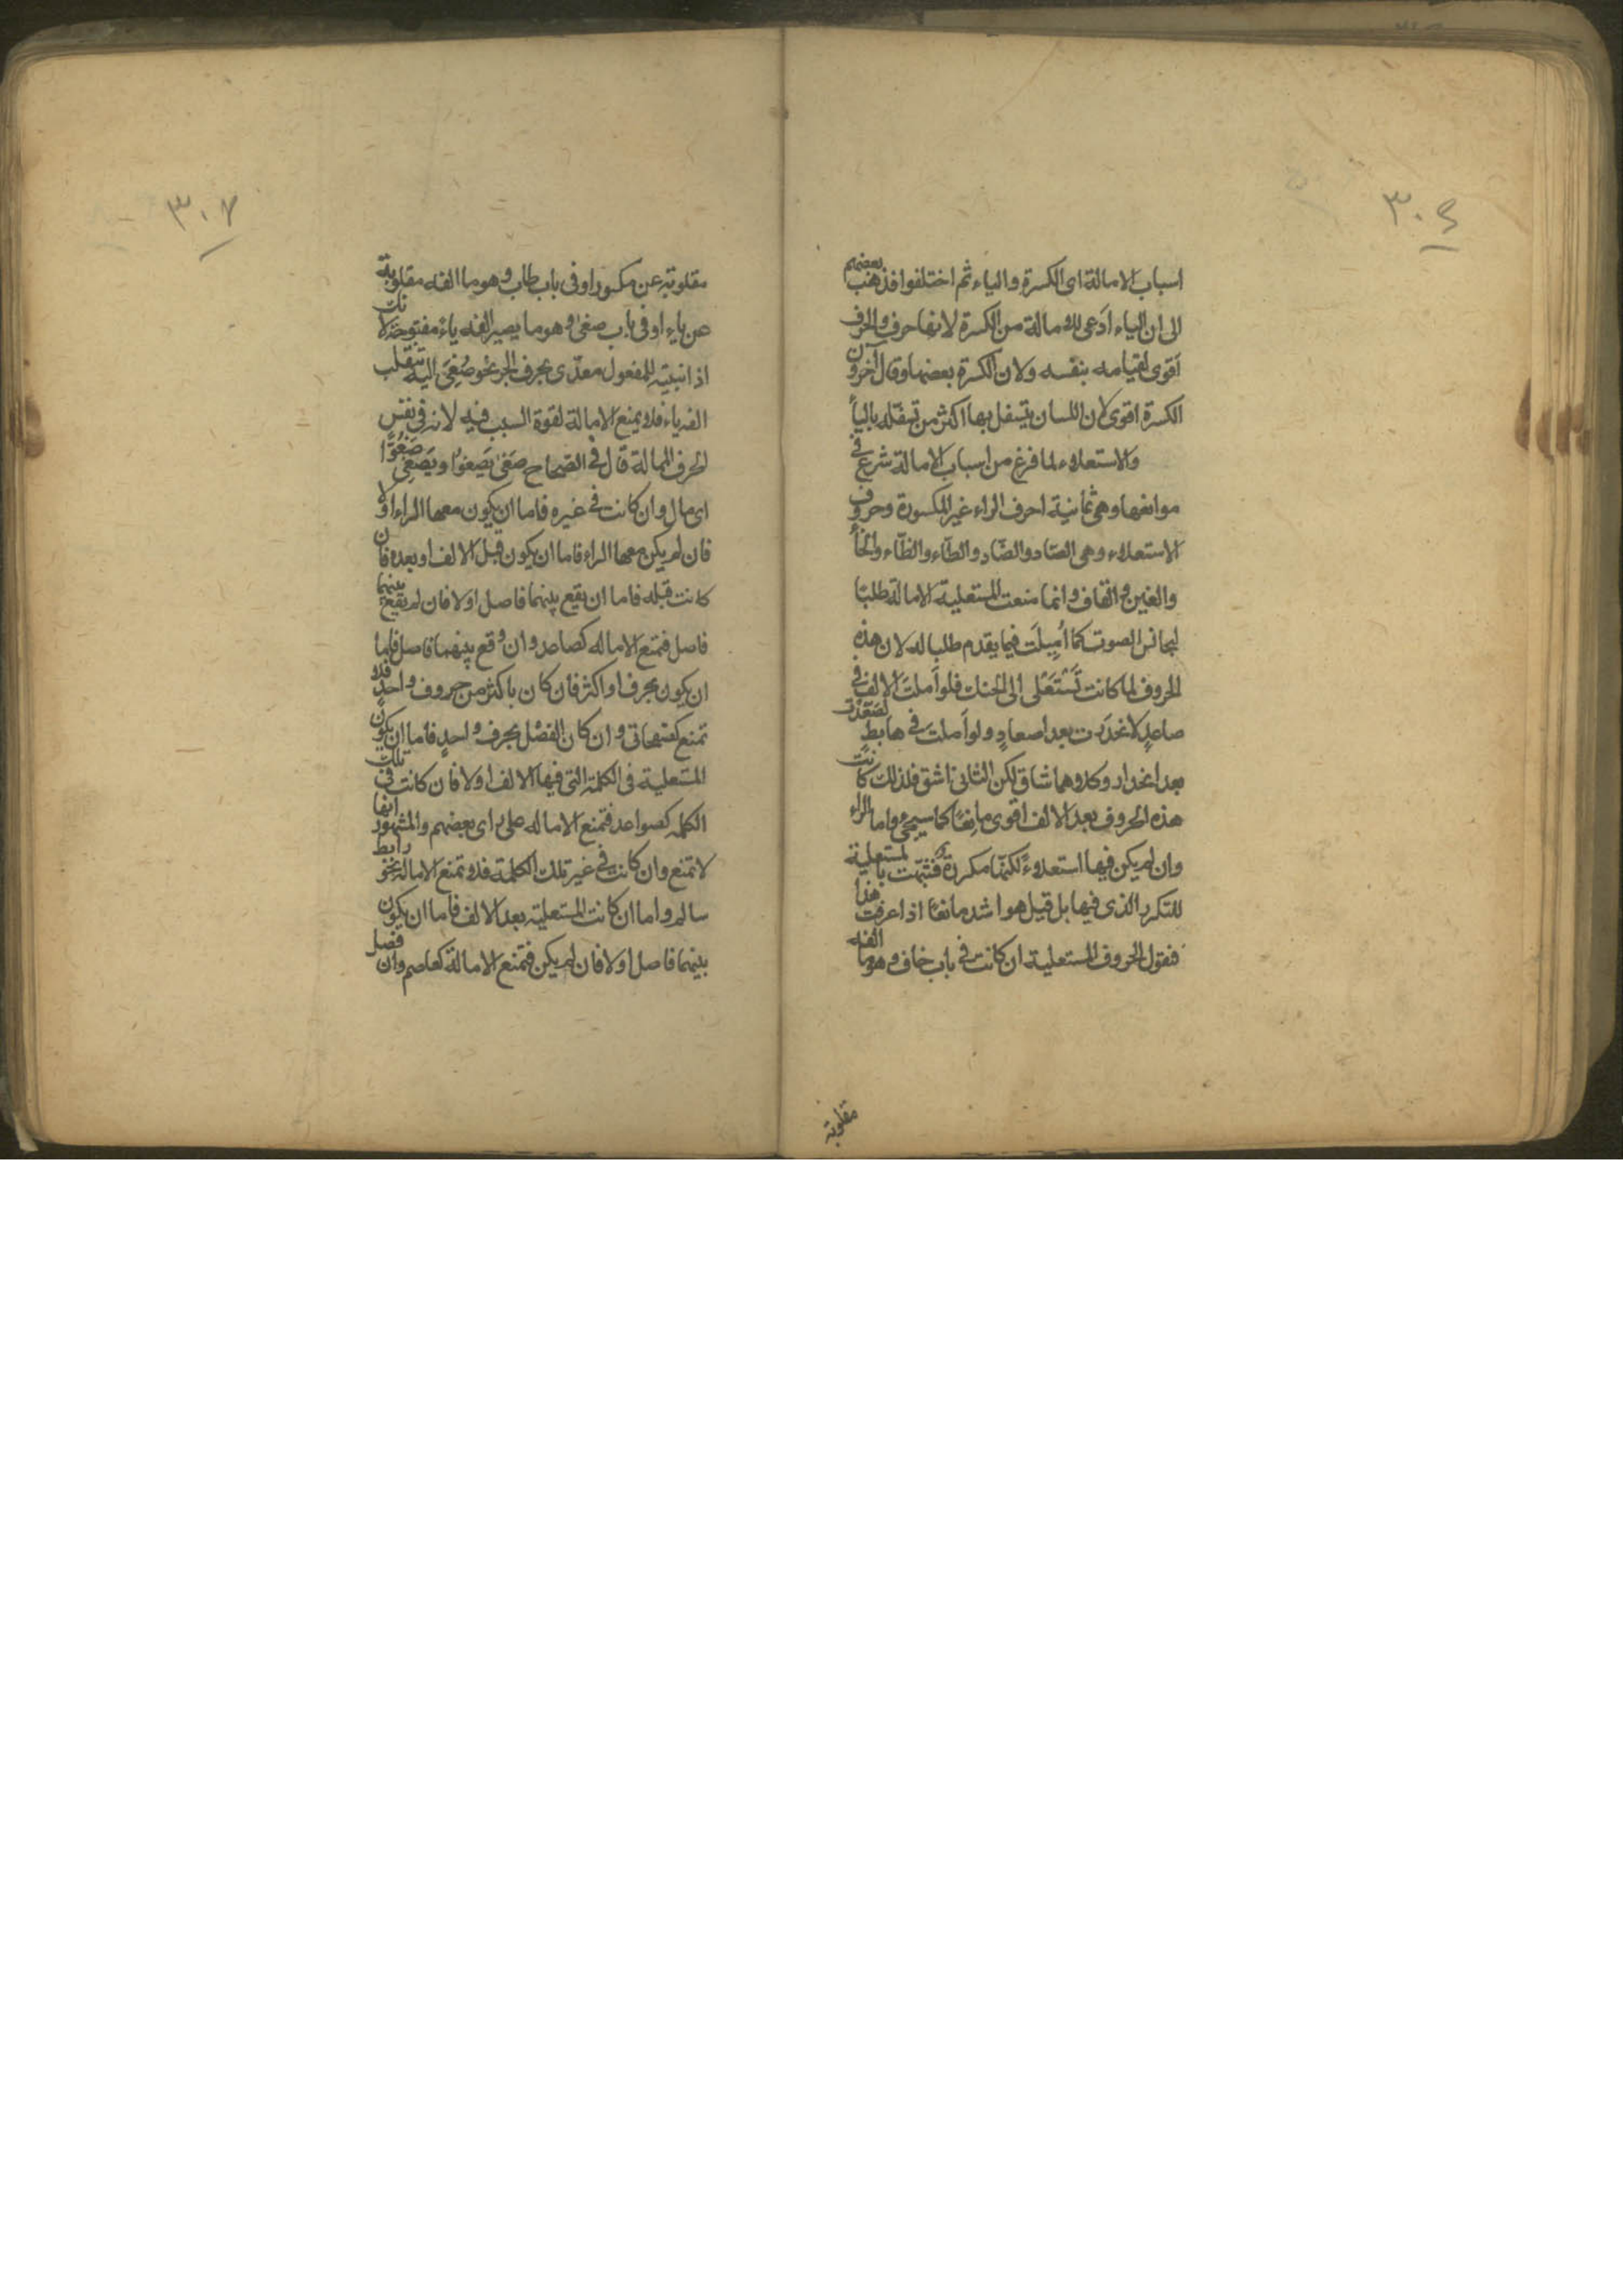 ٣٠٦
اسباب الامالة اى الكسرة والياء ثم اختلفوا فذهب بعضهم
الى ان الياء ادعى للامالة من الكسرة لانها حرف والحرف
اقوى لقيامه بنفسه ولان الكسرة بعضها وقال آخرون
الكسرة اقوى لان اللسان يتسفل بها اكثر من تسفله بالياء
والاستعلاء لما فرغ من اسباب الامالة شرع في
موانعها وهى ثمانية احرف الراء غير المكسورة وحروف
الاستعلاء وهى الصّاد والضّاد والطّاء والظّاء والخاء
والغين والقاف وانما منعت المستعلية الامالة طلبًا
لتجانس الصوت كما أُمِيلَت فيما يقدم طلبا له لان هذه
الحروف لما كانت تَسْتَعْلى الى الحنك فلو اَملتَ الالف في
صاعدٍ لانحدَرت بعد اصعادٍ ولو اَملتَ في هابطٍ لصَعَدْتَ
بعد انحدار وكلاهما شاق لكن الثانى اشق فلذلك كانت
هذه الحروف بعد الالف اقوى مانعًا كما سيجئ واما الراء
وان لم يكن فيها استعلاءٌ لكنّها مكررة فشبّهت بالمستعلية
للتكرر الذى فيها بل قيل هو اشد مانعًا اذا عرفت هذا
فنقول الحروف المستعلية ان كانت في باب خاف وهو ما الفه
مقلوبة
٣٠٧
مقلوبة عن مكسور او فى باب طاب وهو ما الفه مقلوبة
عن ياء او فى باب صغى وهو ما يصير الفه ياءً مفتوحة لانك
اذا نبيته للمفعول معدّى بحرف الجر نحو صُغِىَ اليه تنقلب
الفه ياء فلا يمنع الامالة لقوة السبب فيه لانه فى نفس
الحرف الممالة قال في الصحاح صَغىٰ يَصغوُا ويَصغى صَغْوًا
اى مال وان كانت في غيره فاما ان يكون معها الراء او لا
فان لم يكن معها الراء فاما ان يكون قبل الالف او بعده فان
كانت قبله فاما ان يقع بينهما فاصل او لا فان لم يقع بينهما
فاصل فتمنع الاماله كصاعد وان وقع بينهما فاصل فاما
ان يكون بحرف او اكثر فان كان باكثر من حروف واحدٍ فلا
تمنع كضبهاتى وان كان الفصْل بحرف واحدٍ فاما ان يكون
المستعلية فى الكلمة التى فيها الالف او لا فان كانت فى تلك
الكلمه كصواعد فتمنع الاماله على راى بعضهم والمشهور انها
لا تمنع وان كانت في غير تلك الكلمة فلا تمنع الامالة نحو رابط
سالم واما ان كانت المستعلية بعد الالف فاما ان يكون
بينهما فاصل او لا فان لم يكن فتمنع الامالة كعاصم وان فصل